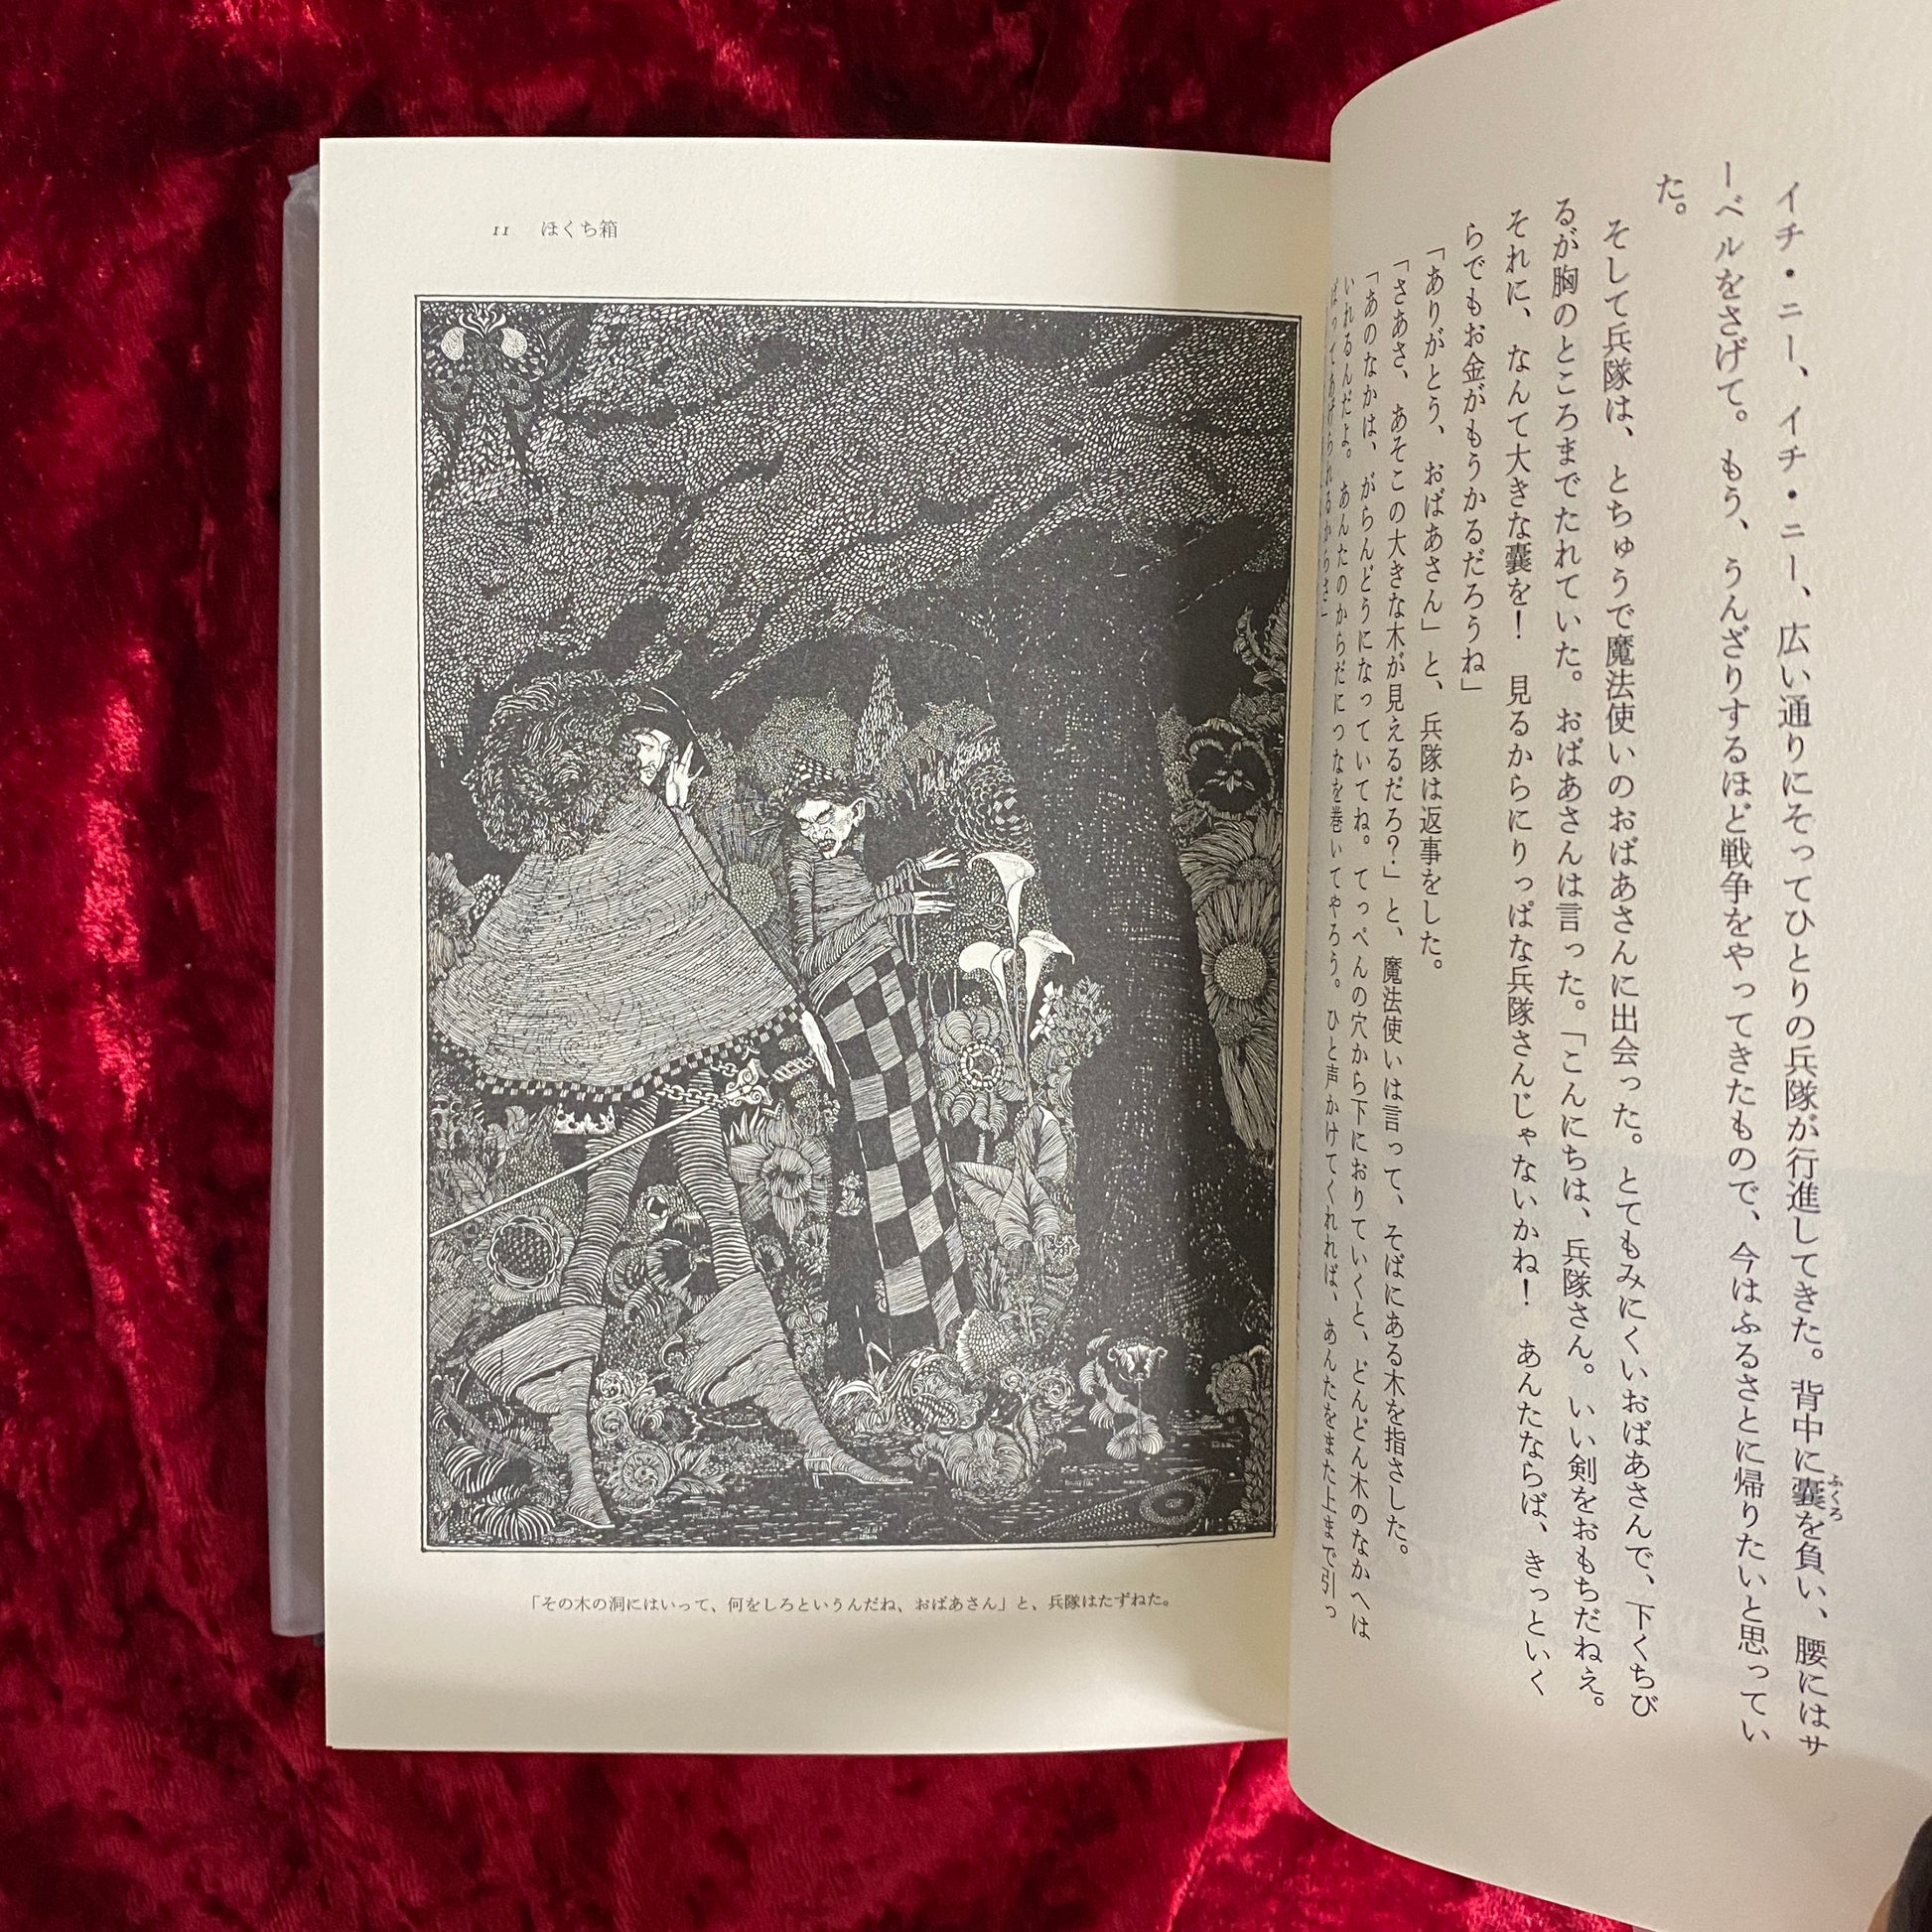 イチ・ニー、イチ・ニー、広い通りにそってひとりの兵隊が行進してきた。背中に囊を負い、腰にはサ
ふくろ
ーベルをさげて。もう、うんざりするほど戦争をやってきたもので、今はふるさとに帰りたいと思ってい
た。
そして兵隊は、とちゅうで魔法使いのおばあさんに出会った。とてもみにくいおばあさんで、下くちび
るが胸のところまでたれていた。おばあさんは言った。「こんにちは、兵隊さん。いい剣をおもちだねえ。
それに、なんて大きな囊を！　見るからにりっぱな兵隊さんじゃないかね！　あんたならば、きっといく
らでもお金がもうかるだろうね」
「ありがとう、おばあさん」と、兵隊は返事をした。
「さあさ、あそこの大きな木が見えるだろ？」と、魔法使いは言って、そばにある木を指さした。
「あのなかは、がらんどうになっていてね。てっぺんの穴から下におりていくと、どんどん木のなかへは
いれるんだよ。あんたのからだにつなを巻いてやろう。ひと声かけてくれれば、あんたをまた上まで引っ
ぱってあげられるからさ」
11 ほくち箱
「その木の洞にはいって、何をしろというんだね、おばあさん」と、兵隊はたずねた。